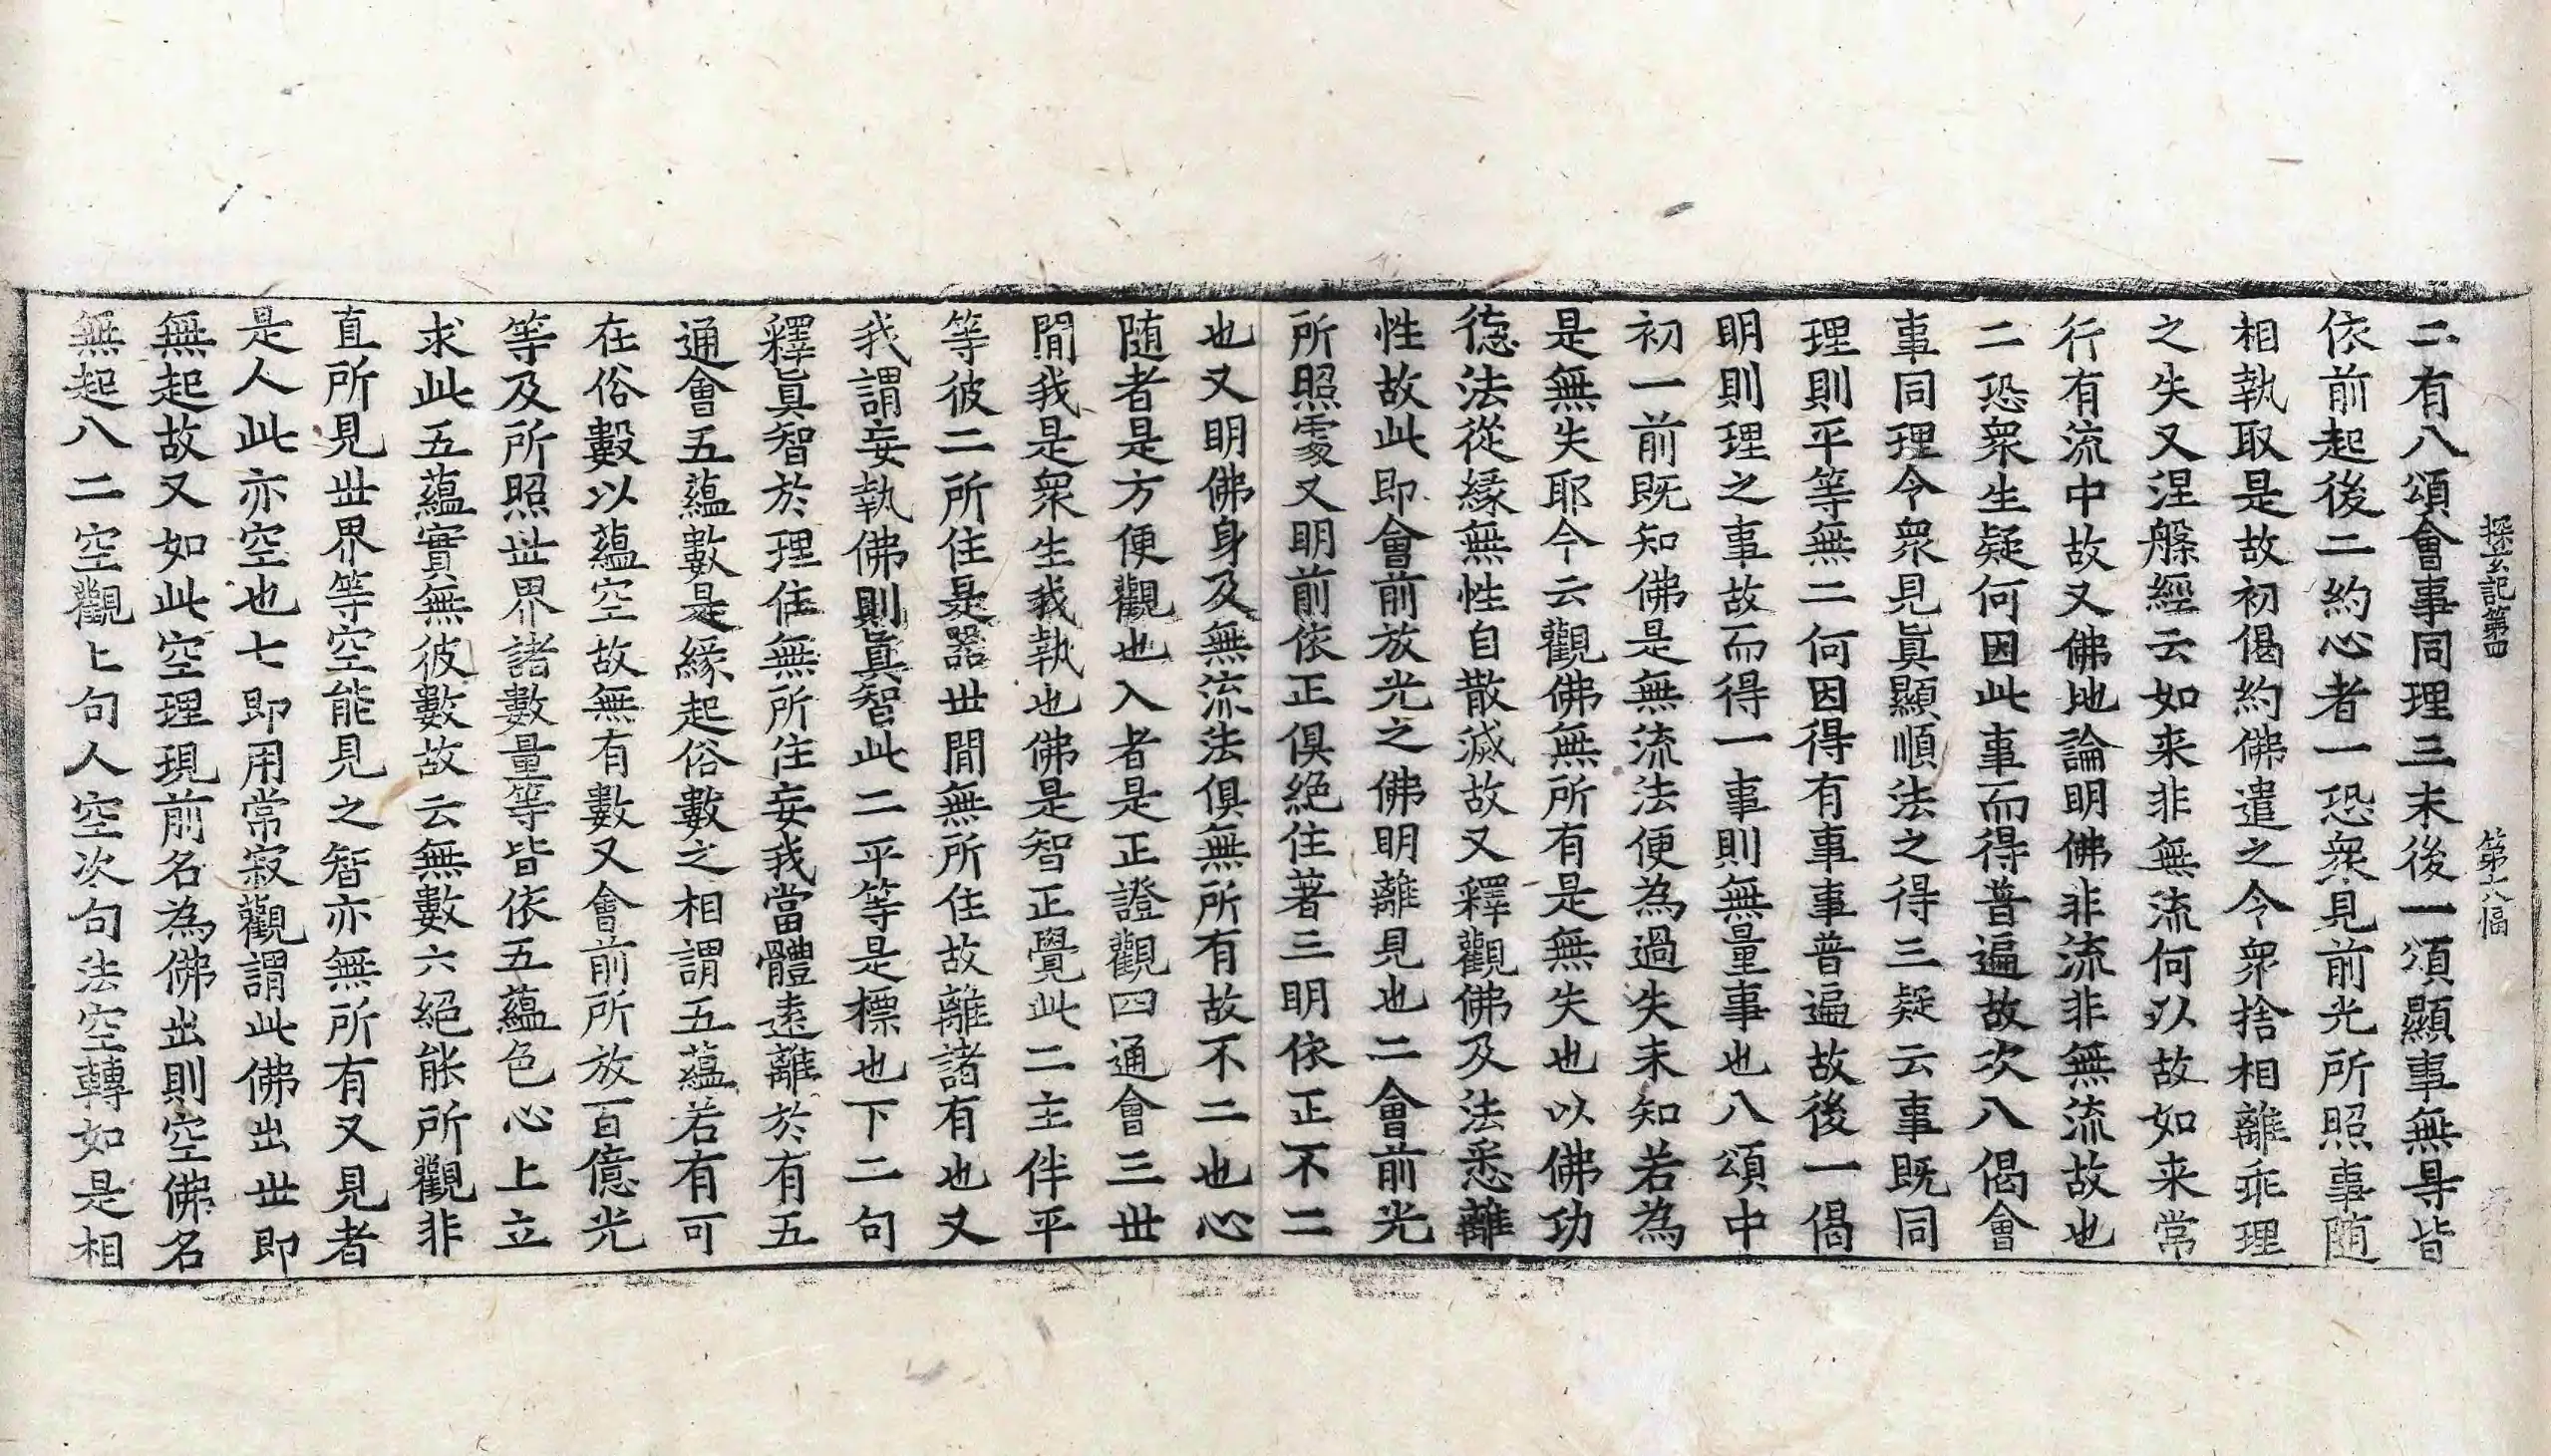 探玄記第四 第十八幅
二有八頌會事同理三末後一頌顯事無㝵皆
依前起後二約心者一恐衆見前光所照事随
相執取是故初偈約佛遣之令衆捨相離乖理
之失又涅槃經云如来非無流何以故如来常
行有流中故又佛地論明佛非流非無流故也
二恐衆生疑何因此事而得普遍故次八偈會
事同理令衆見眞顯順法之得三疑云事既同
理則平等無二何因得有事事普遍故後一偈
明則理之事故而得一事則無量事也八頌中
初一前既知佛是無流法便為過失未知若為
是無失耶今云觀佛無所有是無失也以佛功
徳法從緣無性自散滅故又釋觀佛及法悉離
性故此即會前放光之佛明離見也二會前光
所照處又明前依正俱絶住著三明依正不二
也又明佛身及無流法俱無所有故不二也心
随者是方便觀也入者是正證觀四通會三世
間我是衆生我執也佛是智正覺此二主伴平
等彼二所住是器世間無所住故離諸有也又
我謂妄執佛則眞智此二平等是標也下二句
釋眞智於理住無所住妄我當體遠離於有五
通會五蘊數是緣起俗數之相謂五蘊若有可
在俗數以蘊空故無有數又會前所放百億光
等及所照世界諸數量等皆依五蘊色心上立
求此五蘊實無彼數故云無數六絕能所觀非
直所見世界等空能見之智亦無所有又見者
是人此亦空也七即用常寂觀謂此佛出世即
無起故又如此空理現前名為佛出則空佛名
無起八二空觀上句人空次句法空轉如是相